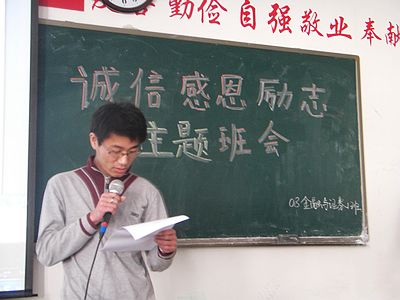 勤俭自强敬业奉献
诚信感恩励志
主题班会
03金融与证券1班